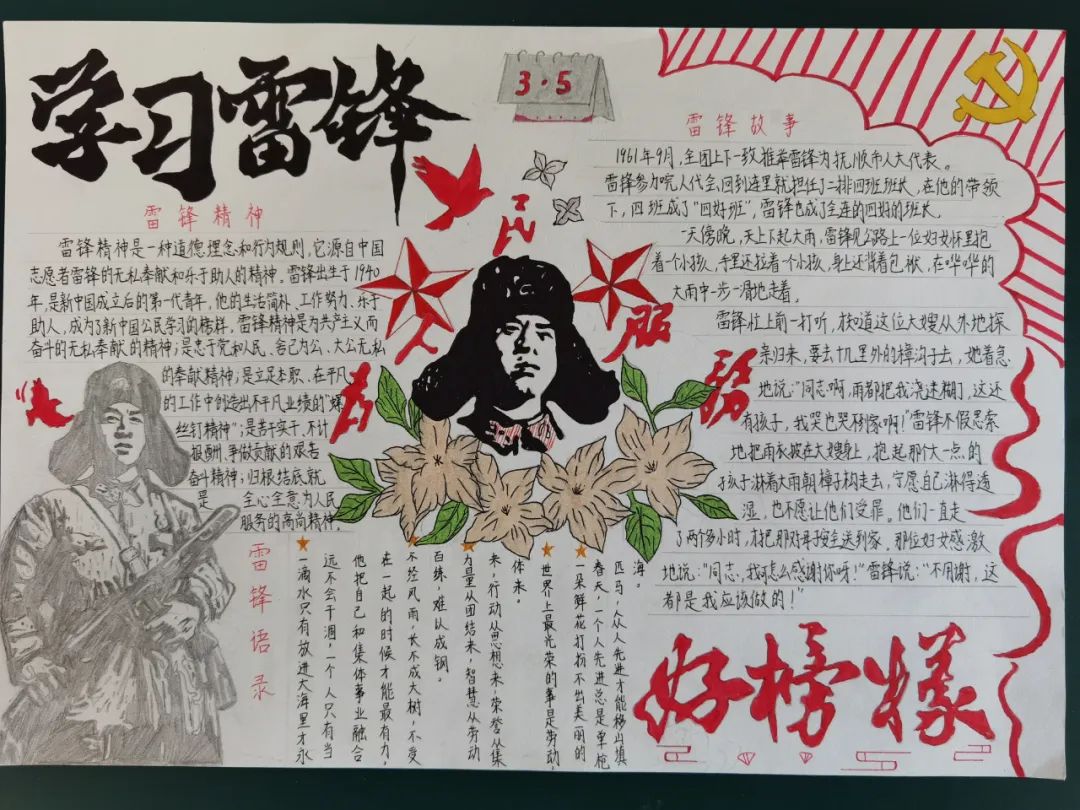 学习雷锋
3·5
雷锋精神
雷锋精神是一种道德理念和行为规则，它源自中国
志愿者雷锋的无私奉献和乐于助人的精神。雷锋出生于1940
年，是新中国成立后的第一代青年，他的生活简朴、工作努力、乐于
助人，成为了新中国公民学习的榜样。雷锋精神是为共产主义而
奋斗的无私奉献的精神；是忠于党和人民、舍己为公、大公无私
的奉献精神；是立足本职、在平凡
的工作中创造出不平凡业绩的"螺
丝钉精神"；是苦干实干、不计
报酬、争做贡献的艰苦
奋斗精神；归根结底就
是 全心全意为人民
服务的高尚精神。
为人民服务
雷锋故事
1961年9月，全团上下一致推举雷锋为抚顺市人大代表。
雷锋参加完人代会，回到连里就担任了二排四班班长，在他的带领
下，四班成了"四好班"，雷锋也成了全连的四好的班长。
一天傍晚，天上下起大雨，雷锋见公路上一位妇女怀里抱
着一个小孩，手里还拉着一个小孩，身上还背着包袱，在哗哗的
大雨中一步一滑地走着。
雷锋忙上前一打听，才知道这位大嫂从外地探
亲归来，要去十几里外的樟沟子去，她着急
地说："同志啊，雨都把我浇迷糊了，这还
有孩子，我哭也哭不到家啊！"雷锋不假思索
地把雨衣披在大嫂身上，抱起那个大一点的
孩子淋着大雨朝樟子构走去，宁愿自己淋得透
湿，也不愿让他们受罪。他们一直走
了两个多小时，才把那对母子安全送到家。那位妇女感激
地说："同志，我可怎么感谢你呀！"雷锋说："不用谢，这
都是我应该做的！"
雷锋语录
一滴水只有放进大海里才永
远不会干涸，一个人只有当
他把自己和集体事业融合
在一起的时候才能最有力。
不经风雨，长不成大树，不受
百练，难以成钢。
力量从团结来，智慧从劳动
来，行动从思想来，荣誉从集
体来。
世界上最光荣的事是劳动，
一朵鲜花打扮不出美丽的
春天，一个人先进总是单枪
匹马，众人先进才能移山填
海。
好榜样